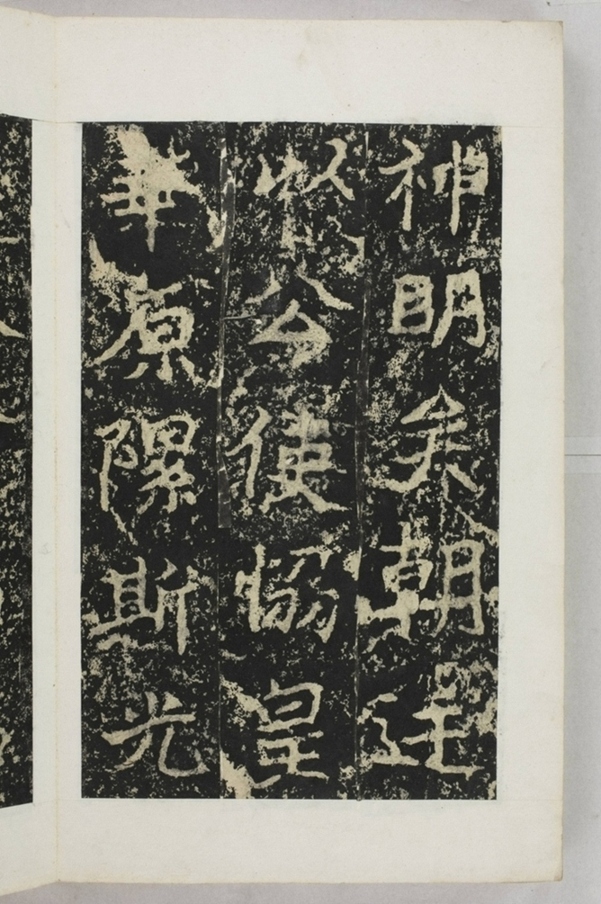 神明矣朝廷
以公使恊皇
華原隰斯光